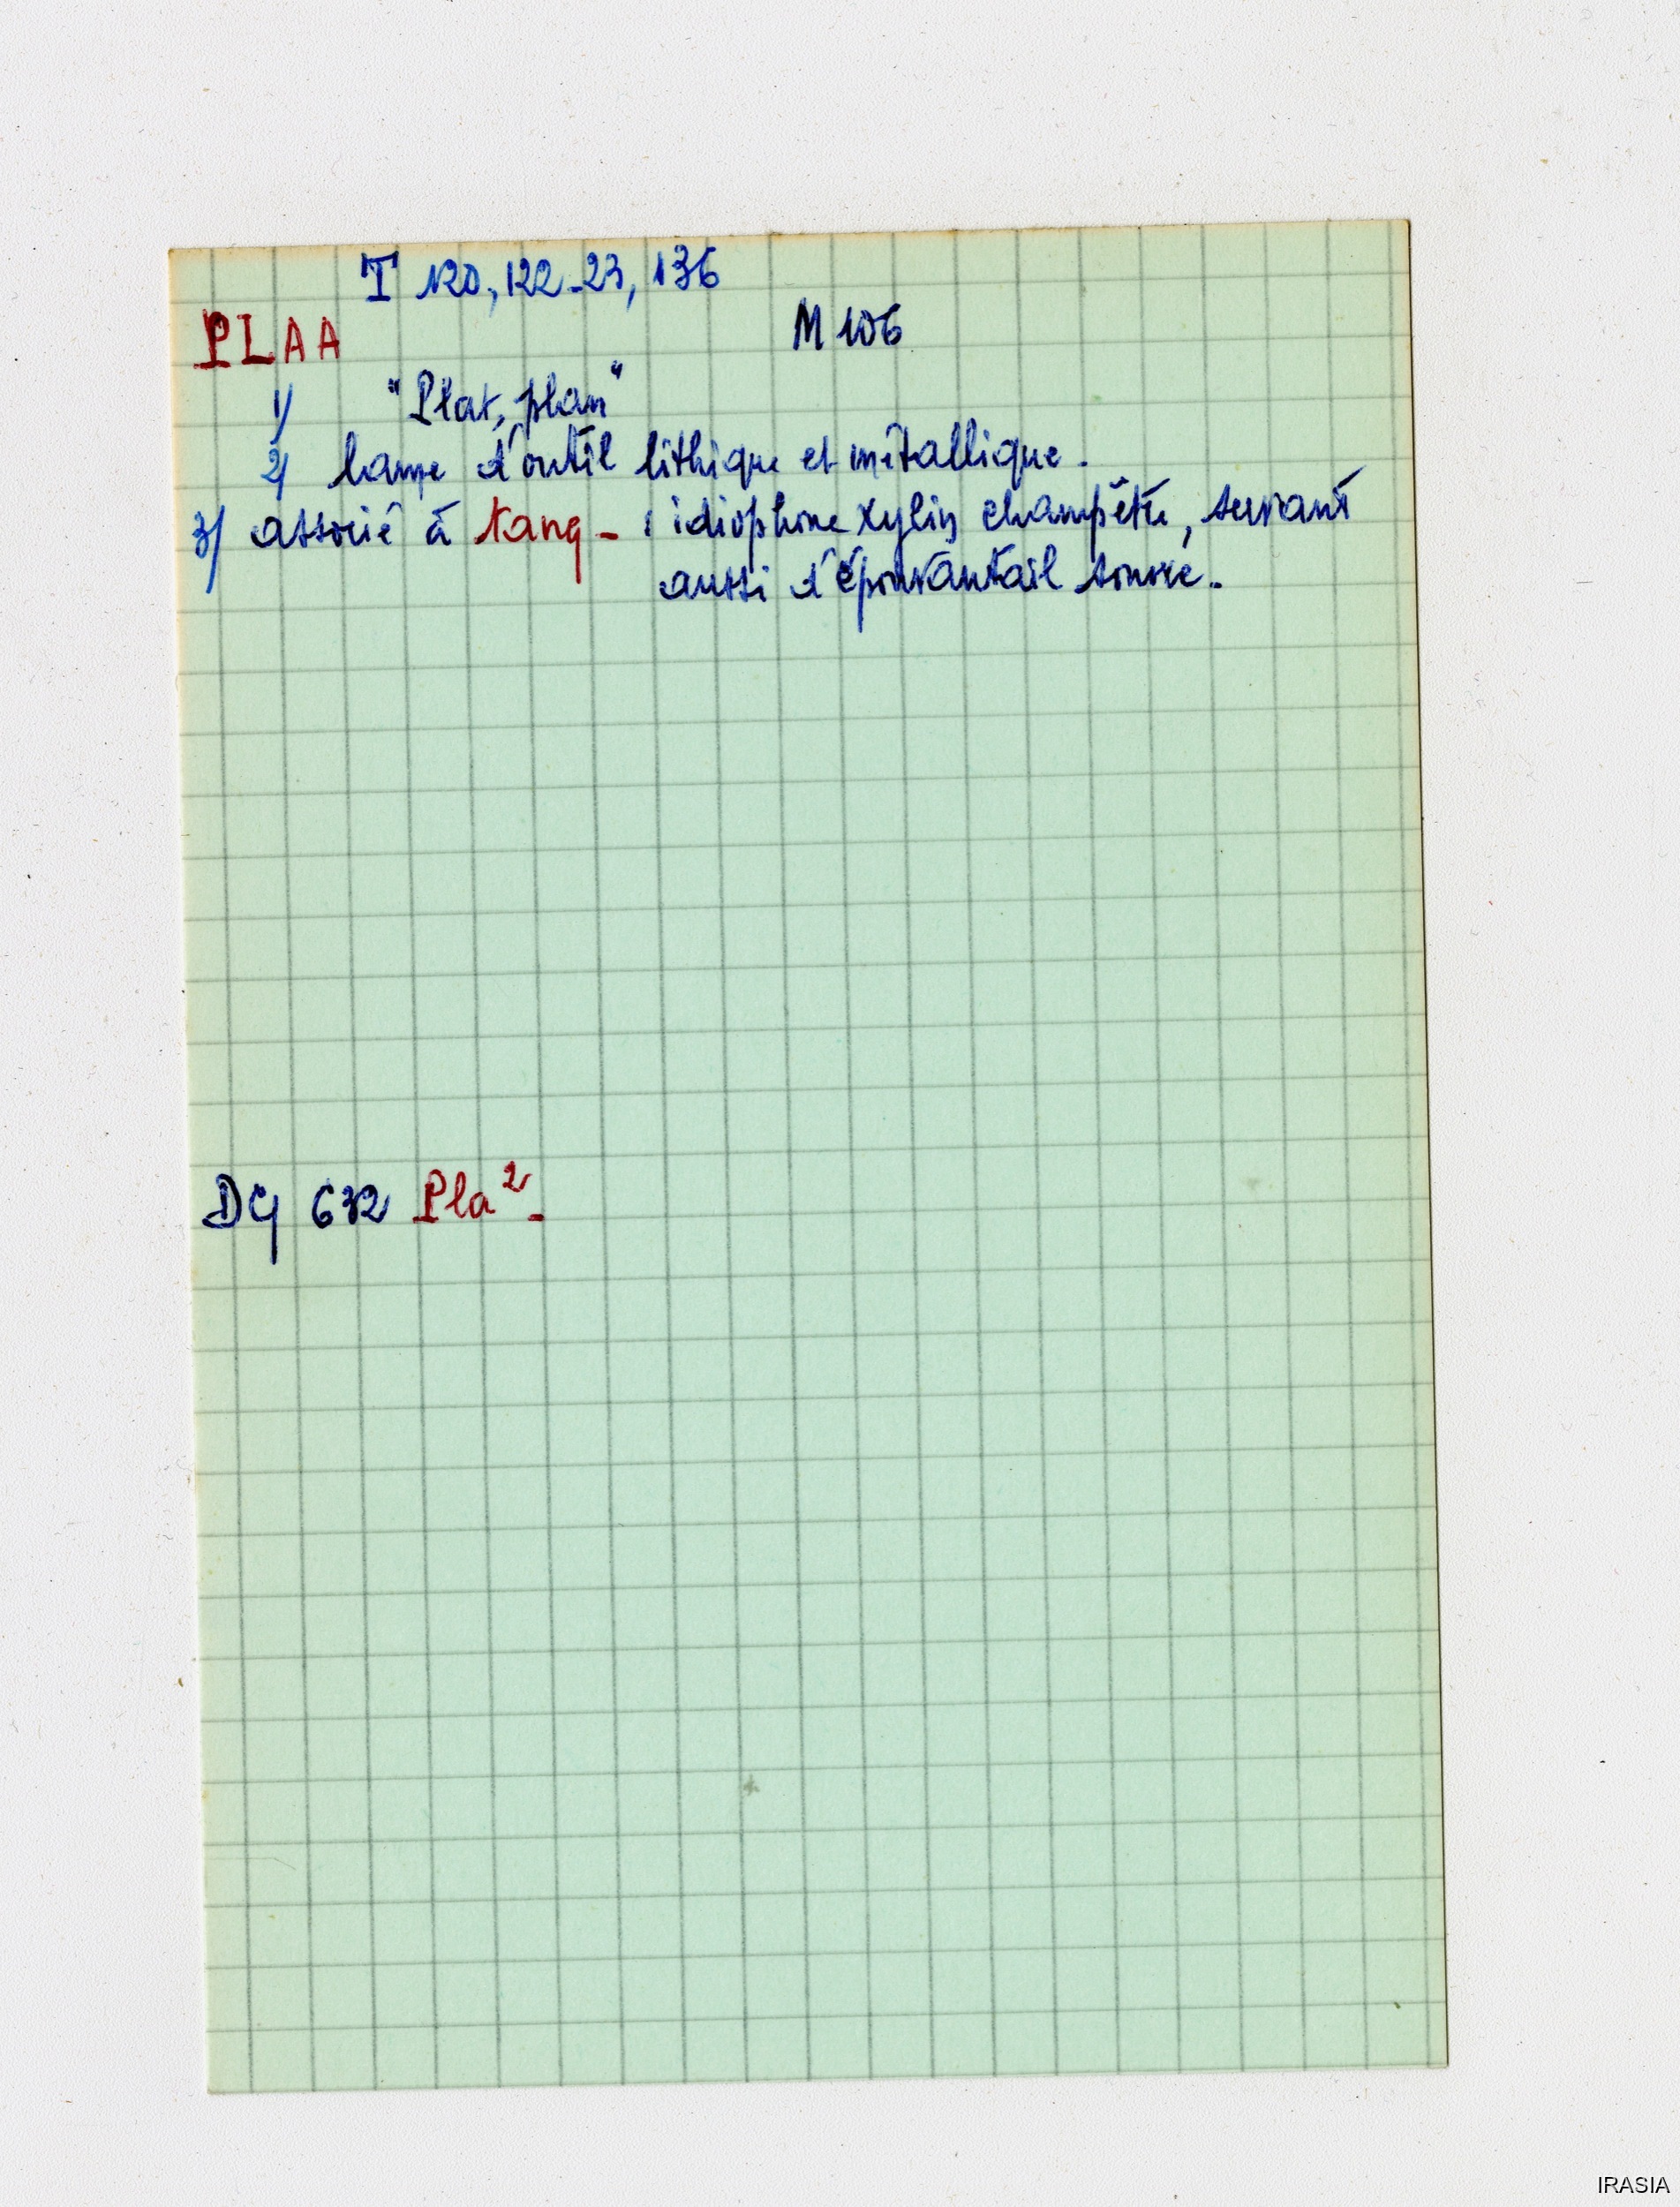 T 120, 122-23, 136
PLAA M 106
1/ "Plat, plan"
2/ lame d'outil lithique et métallique.
3/ associé à tang - : idiophone xylin champêtre, servant
aussi d'épouvantail sonore.
DG 632 Pla² -
IRASIA